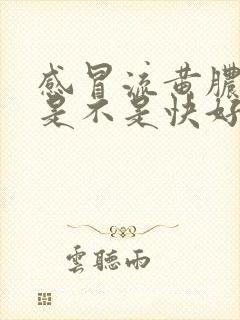 感冒流黄膿
是不是快好
雲聽雨